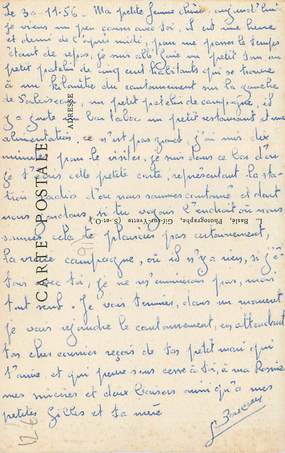 Le 30.11.56 - Ma petite femme chérie, aujourd'hui
je viens un peu causer avec toi, il est une heure
et demi de l'après midi, pour me passer le temps
étant de repos, je suis allé faire un petit tour au
petit patelin de cinq cent habitants qui se trouve
à un kilomètre du cantonnement sur la gauche
de un petit patelin de campagne, il
y a juste un bar tabac un petit restaurant et une
alimentation, ce n'est pas grand, j'ai mis dix
minutes pour le visiter, je suis dans ce bar d'où
je t'écris cette petite carte, représentant la sta-
tion radio d'où nous sommes cantonné et dont
nous gardons si tu voyais l'endroit où nous
sommes cela te plairais pas certainement,
la vraie campagne, où il n'y a rien, si j'é-
tais avec toi, je ne m'ennuierais pas, mais
tout seul. Je vais terminer, dans un moment
je vais rejoindre le cantonnement, en attendant
ton cher courrier reçois de ton petit mari qui
t'aime, et qui pense sans cesse à toi, à ma
mes sincères et doux baisers ainsi qu'a mes
petites Gilles et ta mère
CARTE POSTALE
ADRESSE
Photographe, Gif-sur-Yvette (S.-et-O.)